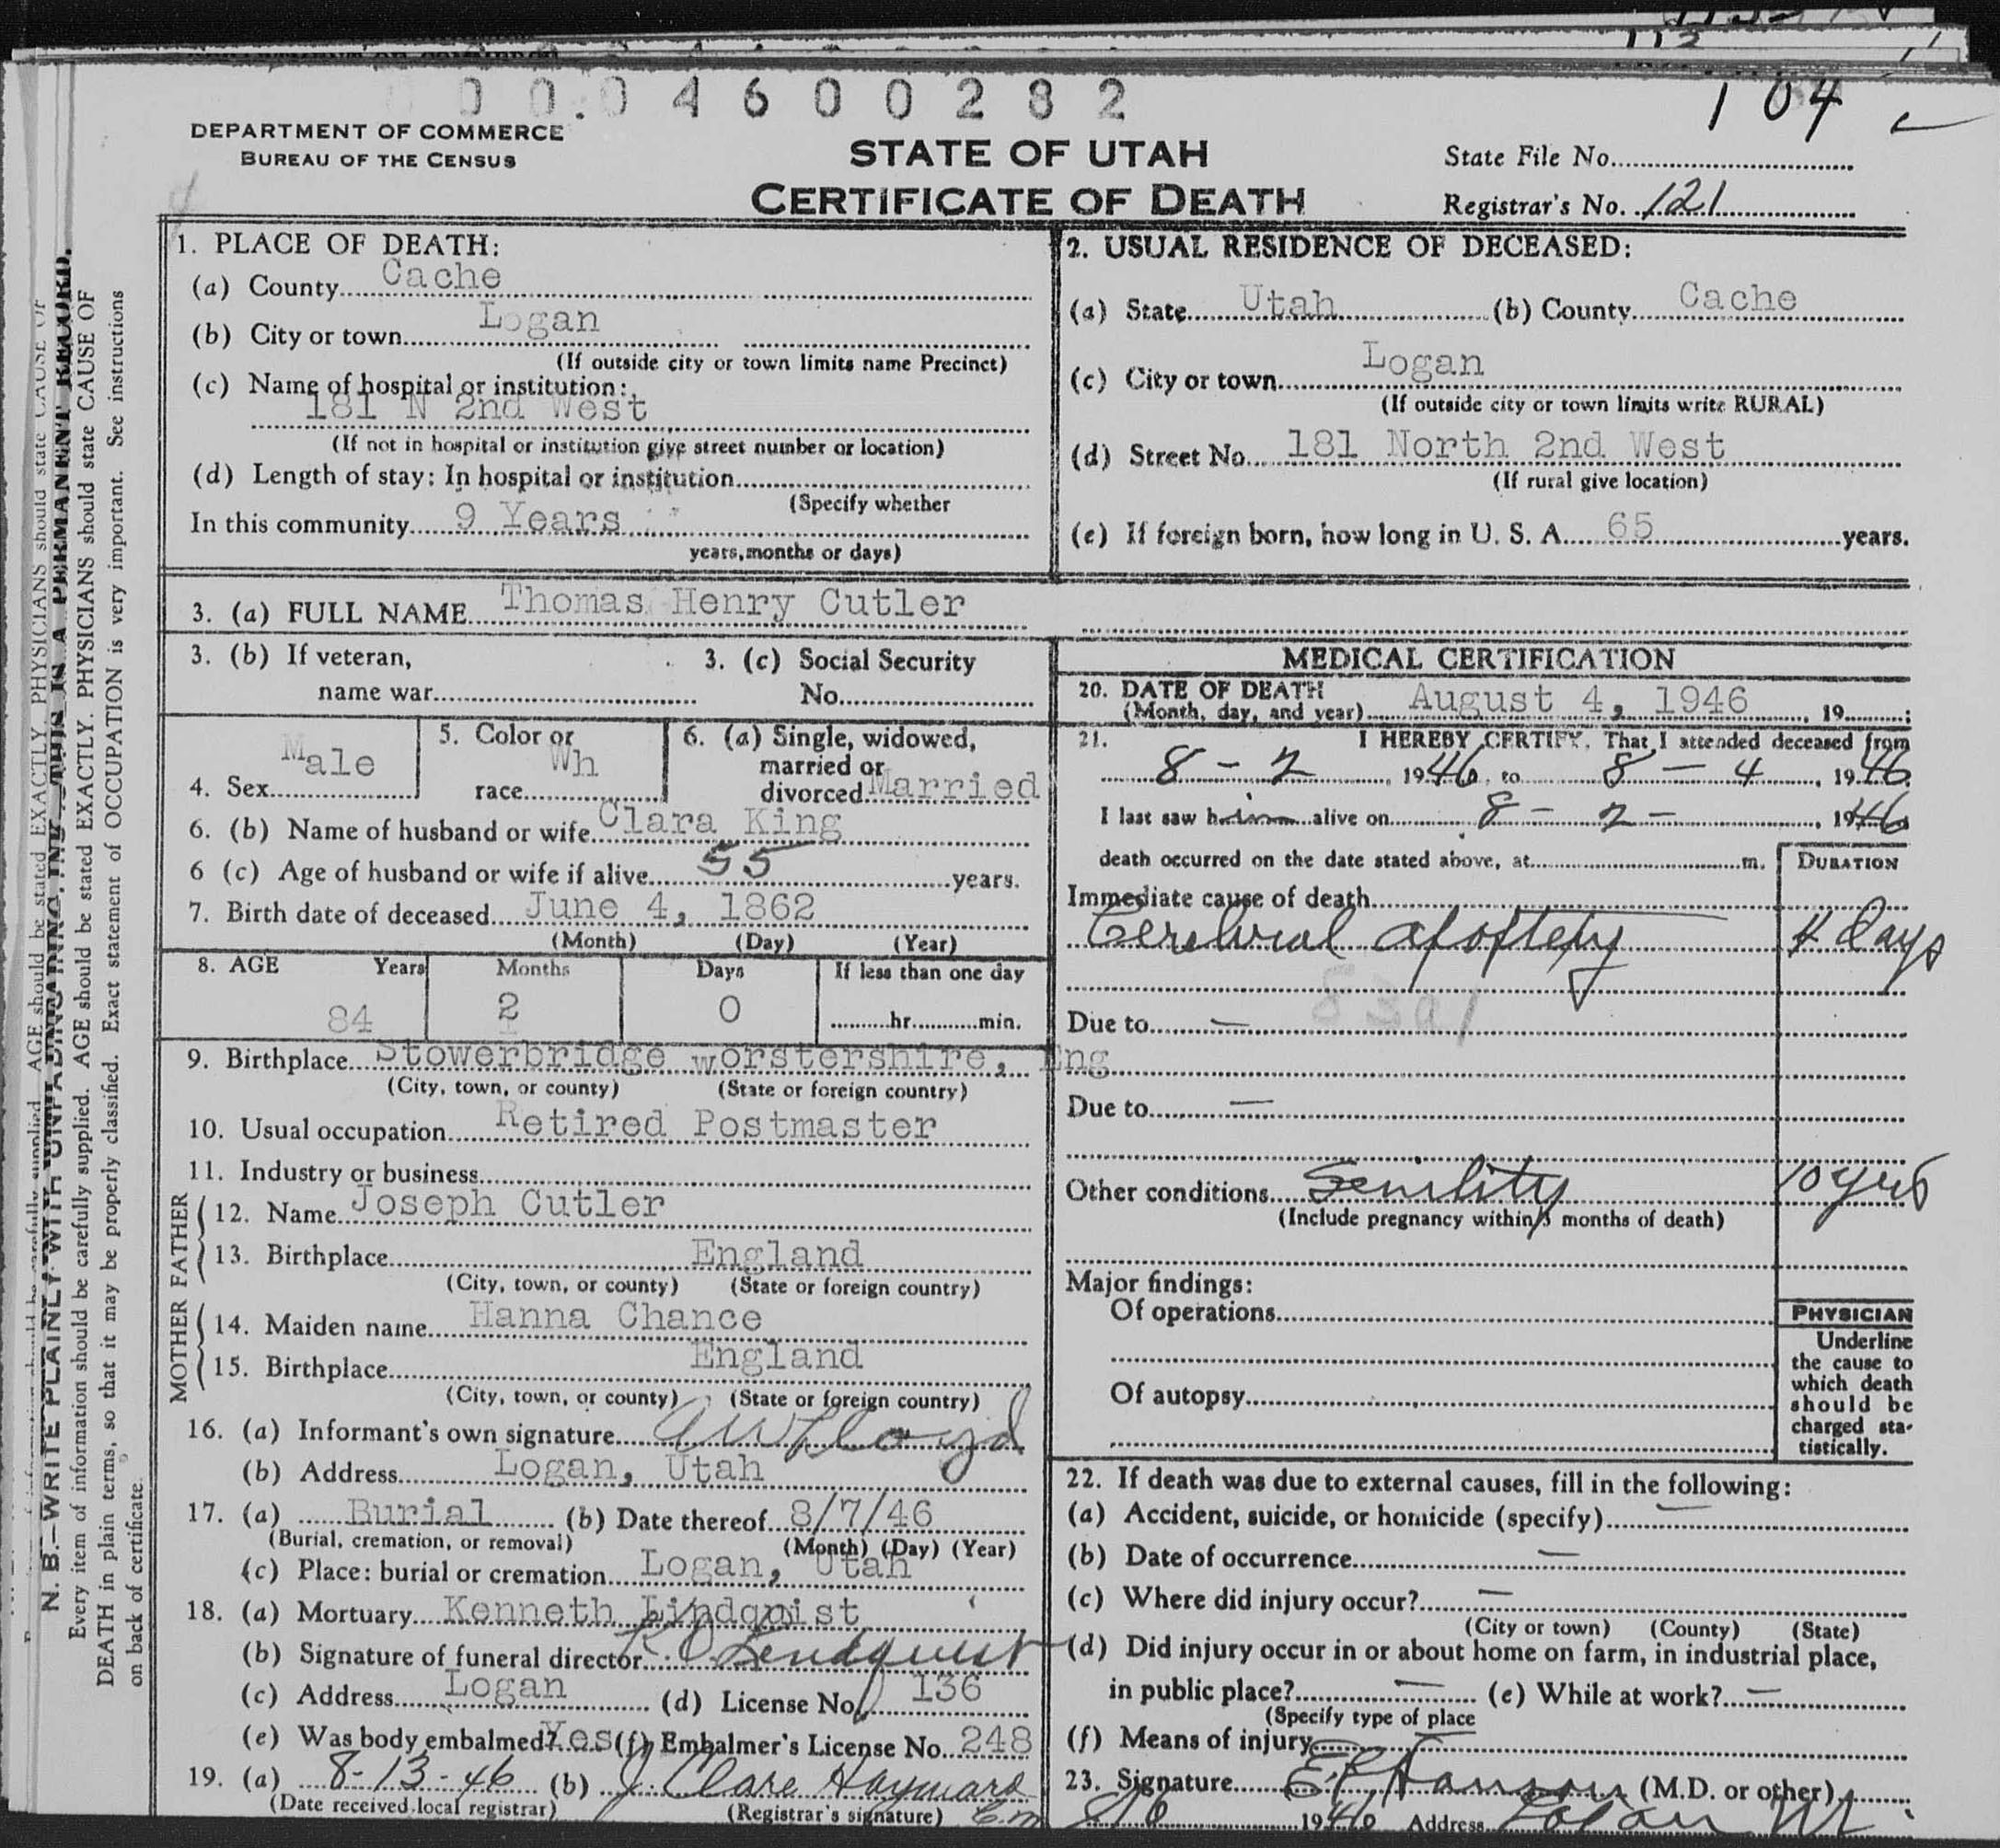 0004600282
104
DEPARTMENT OF COMMERCE
BUREAU OF THE CENSUS
STATE OF UTAH
CERTIFICATE OF DEATH
State File No.
Registrar's No. 121
1. PLACE OF DEATH:
(a) County Cache
(b) City or town Logan
(If outside city or town limits name Precinct)
(c) Name of hospital or institution:
181 N 2nd West
(If not in hospital or institution give street number or location)
(d) Length of stay: In hospital or institution
(Specify whether
In this community 9 Years
years, months or days)
2. USUAL RESIDENCE OF DECEASED:
(a) State Utah (b) County Cache
(c) City or town Logan
(If outside city or town limits write RURAL)
(d) Street No. 181 North 2nd West
(If rural give location)
(e) If foreign born, how long in U. S. A. 65 years.
3. (a) FULL NAME Thomas Henry Cutler
3. (b) If veteran,
name war
3. (c) Social Security
No.
4. Sex Male
5. Color or
race Wh
6. (a) Single, widowed,
married or
divorced Married
6. (b) Name of husband or wife Clara King
6 (c) Age of husband or wife if alive 55 years.
7. Birth date of deceased June 4, 1862
(Month) (Day) (Year)
8. AGE Years Months Days If less than one day
84 2 0 hr. min.
9. Birthplace Stowerbridge worstershire, Eng
(City, town, or county) (State or foreign country)
10. Usual occupation Retired Postmaster
11. Industry or business
FATHER
12. Name Joseph Cutler
13. Birthplace England
(City, town, or county) (State or foreign country)
MOTHER
14. Maiden name Hanna Chance
15. Birthplace England
(City, town, or county) (State or foreign country)
16. (a) Informant's own signature A W Lloyd
(b) Address Logan, Utah
17. (a) Burial (b) Date thereof 8/7/46
(Burial, cremation, or removal) (Month) (Day) (Year)
(c) Place: burial or cremation Logan, Utah
18. (a) Mortuary Kenneth Lindquist
(b) Signature of funeral director K O Lindquist
(c) Address Logan (d) License No. 136
(e) Was body embalmed? Yes (f) Embalmer's License No. 248
19. (a) 8-13-46 (b) J. Clare Hayward
(Date received local registrar) (Registrar's signature) C.m
MEDICAL CERTIFICATION
20. DATE OF DEATH
(Month, day, and year) August 4, 1946, 19 ;
21. I HEREBY CERTIFY, That I attended deceased from
8 - 2, 1946, to 8 - 4, 1946
I last saw him alive on 8 - 2 -, 1946
death occurred on the date stated above, at m.
DURATION
Immediate cause of death
Cerebral apoplexy 4 days
83a1
Due to —
Due to —
Other conditions Senility 10 yrs
(Include pregnancy within 3 months of death)
Major findings:
Of operations
Of autopsy
PHYSICIAN
Underline
the cause to
which death
should be
charged sta-
tistically.
22. If death was due to external causes, fill in the following:
(a) Accident, suicide, or homicide (specify) —
(b) Date of occurrence —
(c) Where did injury occur? —
(City or town) (County) (State)
(d) Did injury occur in or about home on farm, in industrial place,
in public place? — (e) While at work? —
(Specify type of place
(f) Means of injury
23. Signature Hanson (M.D. or other)
1946 Address Logan
N. B.—WRITE PLAINLY WITH UNFADING INK—THIS IS A PERMANENT RECORD.
Every item of information should be carefully supplied. AGE should be stated EXACTLY. PHYSICIANS should state CAUSE OF
DEATH in plain terms, so that it may be properly classified. Exact statement of OCCUPATION is very important. See instructions
on back of certificate.